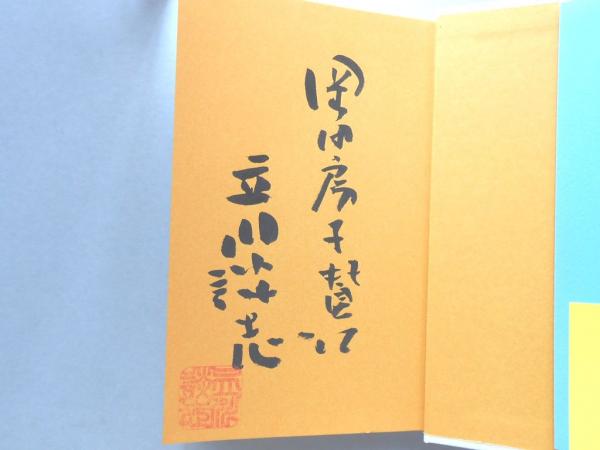 岡田房子賛江
立川談志